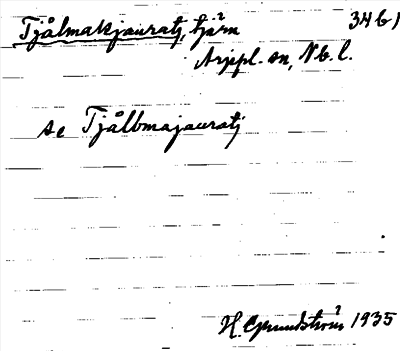 Tjålmakjauratj, tjärn 34 b1
Arjepl. sn, Nb. l.
se Tjålbmajauratj
H. Grundström 1935